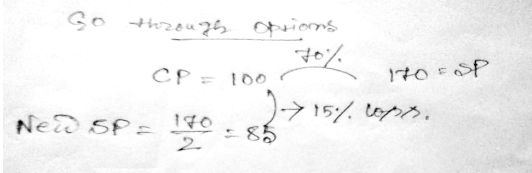 Go through options
70%
CP = 100 170 = SP
→ 15% loss.
New SP = 170/2 = 85